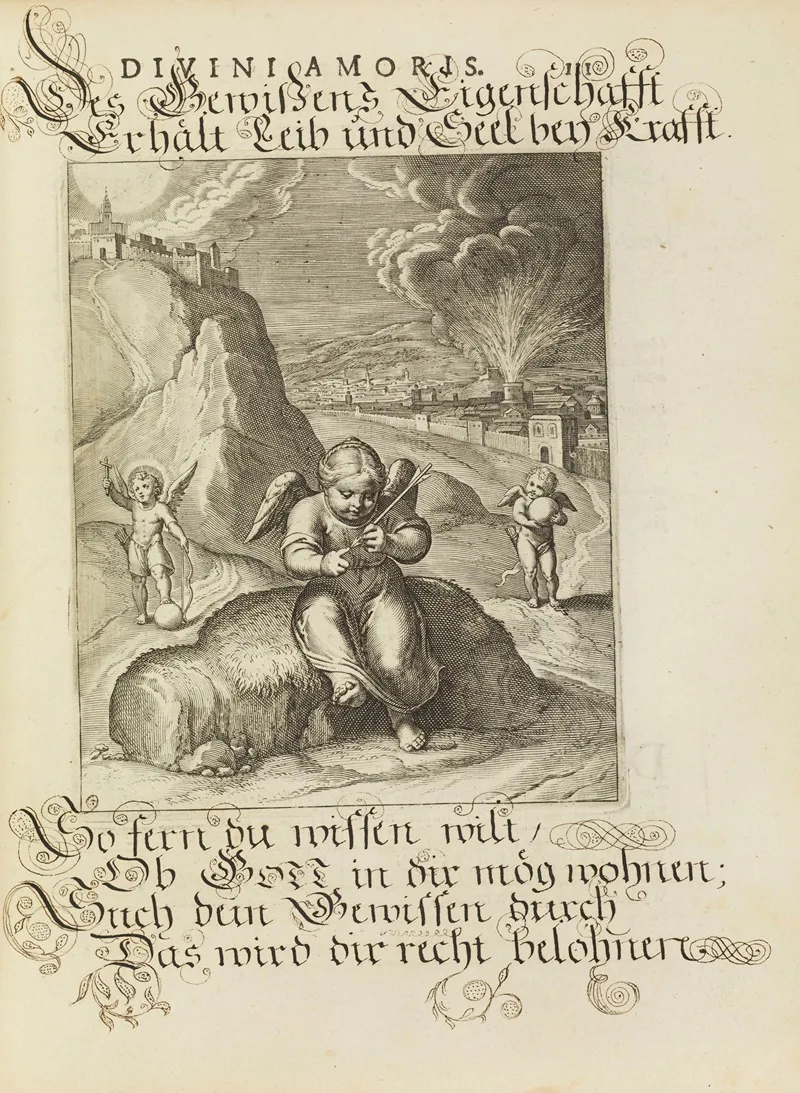 DIVINI AMORIS. 111
Des Gewissens Eigenschafft
Erhält Leib und Seel bey Krafft.
So fern du wissen wilt /
Ob GOTT in dir mög wohnen;
Such dein Gewissen durch
Das wird dir recht belohnen.